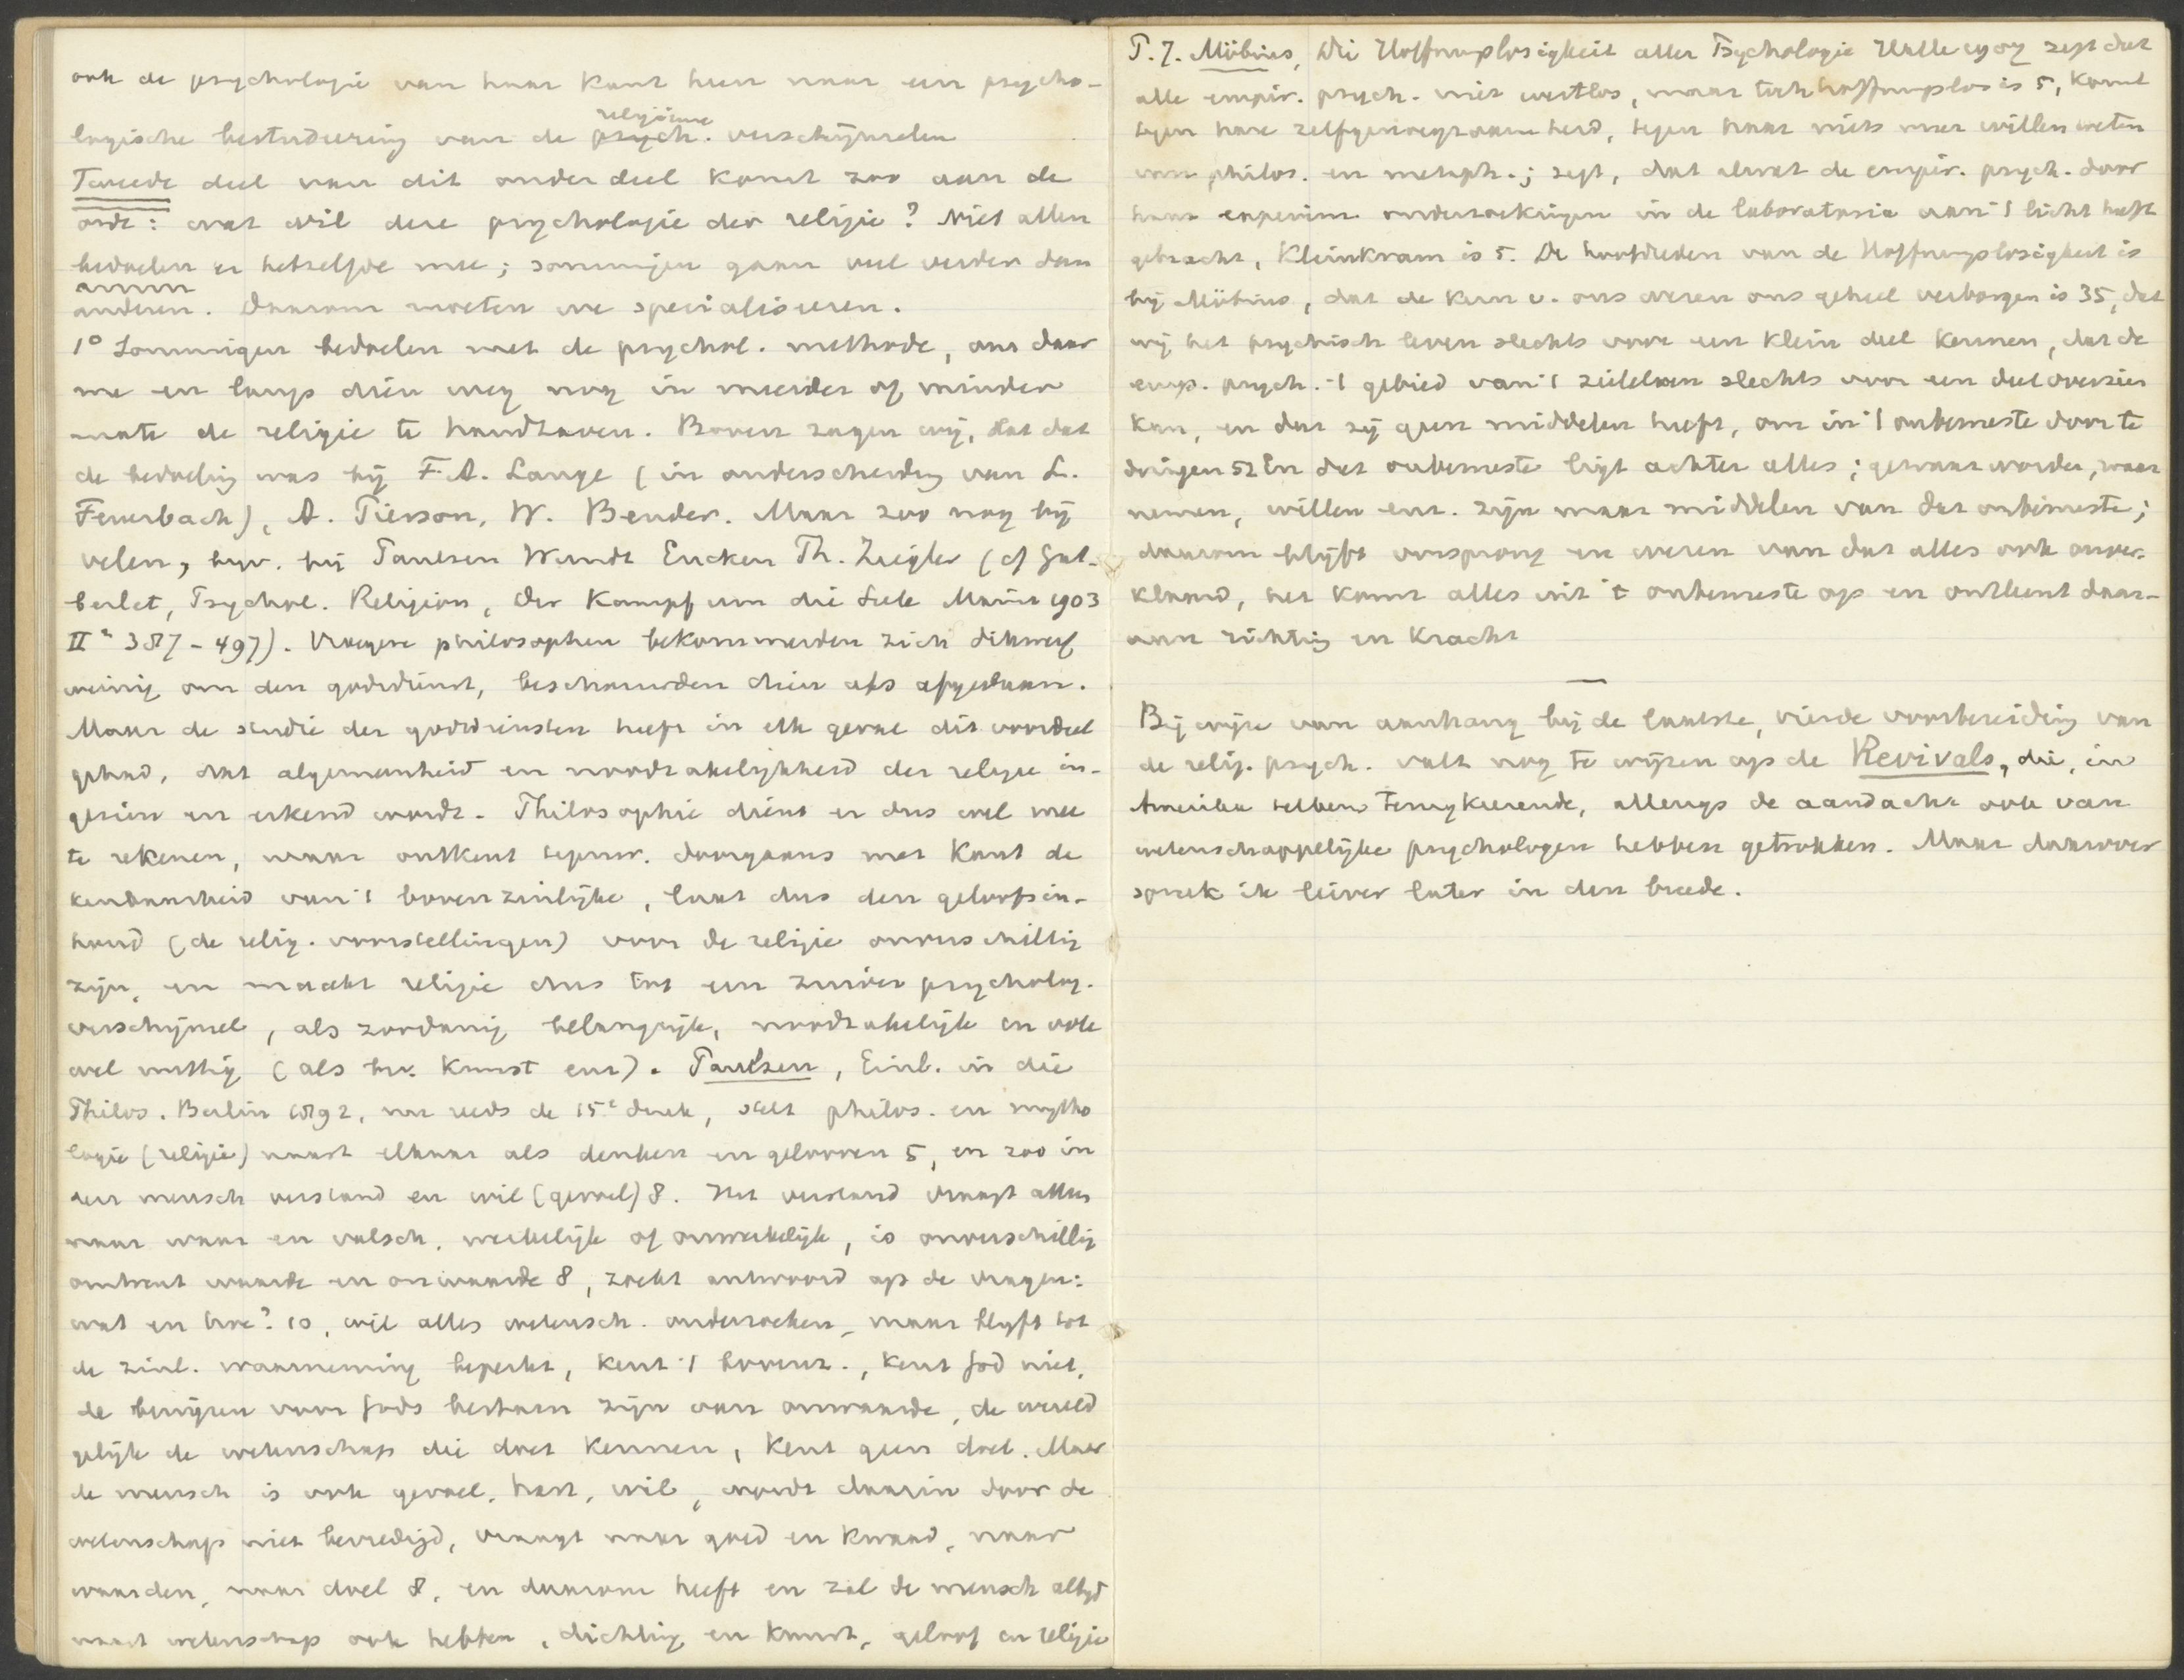 ook de psychologie van haar kant heen naar een psycho-
religieuse
logische bestudeering van de psych. verschijnselen
Tweede deel van dit onderdeel komt zoo aan de
orde: wat wil deze psychologie der religie? Niet allen
bedoelen er hetzelfde mee; sommigen gaan veel verder dan
anderen. Daarom moeten we specialiseeren.
1° Sommigen bedoelen met de psychol. methode, om daar
me en langs dien weg nog in meerder of minder
mate de religie te handhaven. Boven zagen wij, dat dat
de bedoeling was bij F.A. Lange (in onderscheiding van L.
Feuerbach), A. Pierson, W. Bender. Maar zoo nog bij
velen, byv. bij Paulsen Wundt Eucken Th. Ziegler (cf Gut-
berlet, Psychol. Religion, Der Kampf um die Seele Mainz 1903
II² 387-497). Vroegere philosophen bekommerden zich dikwerf
weinig om den godsdienst, beschouwden dien als afgedaan.
Maar de studie der godsdiensten heeft in elk geval dit voordeel
gehad, dat algemeenheid en noodzakelijkheid der religie in-
gezien en erkend wordt. Philosophie dient er dus wel mee
te rekenen, maar ontkent tegenw. doorgaans met Kant de
kenbaarheid van 't bovenzinlijke, laat dus den geloofsin-
houd (de relig. voorstellingen) voor de religie onverschillig
zijn, en maakt religie dus tot een zuiver psycholog.
verschijnsel, als zoodanig belangrijk, noodzakelijk en ook
wel nuttig (als bv. kunst enz). Paulsen, Einl. in die
Philos. Berlin 1892, nu reeds de 15e druk, stelt philos. en mytho
logie (religie) naast elkaar als denken en gelooven 5, en zoo in
den mensch verstand en wil (gevoel) 8. Het verstand vraagt alleen
naar waar en valsch, werkelijk of onwerkelijk, is onverschillig
omtrent waarde en onwaarde 8, zoekt antwoord op de vragen:
wat en hoe? 10, wil alles wetensch. onderzoeken, maar blijft tot
de zinl. waarneming beperkt, kent 't bovenz., kent God niet,
de bewijzen voor Gods bestaan zijn van onwaarde, de wereld
gelijk de wetenschap die doet kennen, kent geen doel. Maar
de mensch is ook gevoel, hart, wil, wordt daarin door de
wetenschap niet bevredigd, vraagt naar goed en kwaad, naar
waarden, naar doel 8, en daarom heeft en zal de mensch altijd
naast wetenschap ook hebben, dichting en kunst, geloof en religie
P. J. Möbius, Die Hoffnungslosigkeit aller Psychologie Halle 1907 zegt dat
alle empir. psych. niet wertlos, maar toch hoffnungslos is 5, komt
tegen hare zelfgenoegzaamheid, tegen haar niets meer willen weten
van philos. en metaph.; zegt, dat alwat de empir. psych. door
haar experim. onderzoekingen in de laboratoria aan 't licht heeft
gebracht, Kleinkram is 5. De hoofdreden van de Hoffnungslosigkeit is
bij Möbius, dat de kern v. ons wezen ons geheel verborgen is 35, dat
wij het psychisch leven slechts voor een klein deel kennen, dat de
emp. psych. 't gebied van 't zieleleven slechts voor een deel overzien
kan, en dat zij geen middelen heeft, om in 't onbewuste door te
dringen 52 En dat onbewuste ligt achter alles; gewaarworden, waar
nemen, willen enz. zijn maar middelen van dat onbewuste;
daarom blijft oorsprong en wezen van dat alles ook onver-
klaard, het komt alles uit 't onbewuste op en ontleent daar-
aan richting en kracht
Bij wijze van aanhang bij de laatste, vierde voorbereiding van
de relig. psych. valt nog te wijzen op de Revivals, die, in
Amerika telkens terugkeerende, allengs de aandacht ook van
wetenschappelijke psychologen hebben getrokken. Maar daarover
spreek ik liever later in den breede.